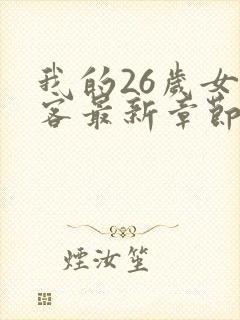 我的26歲女
客最新章節
煙汝笙